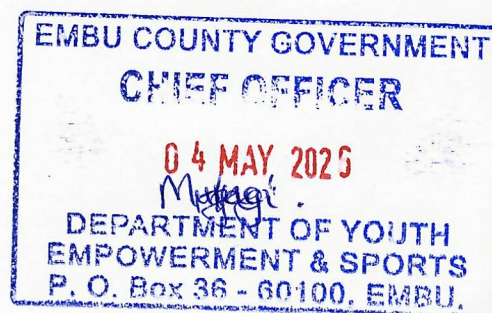 EMBU COUNTY GOVERNMENT
CHIEF OFFICER
04 MAY 2026
DEPARTMENT OF YOUTH
EMPOWERMENT & SPORTS
P. O. Box 36 - 60100, EMBU.